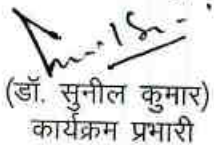 (डॉ. सुनील कुमार)
कार्यक्रम प्रभारी